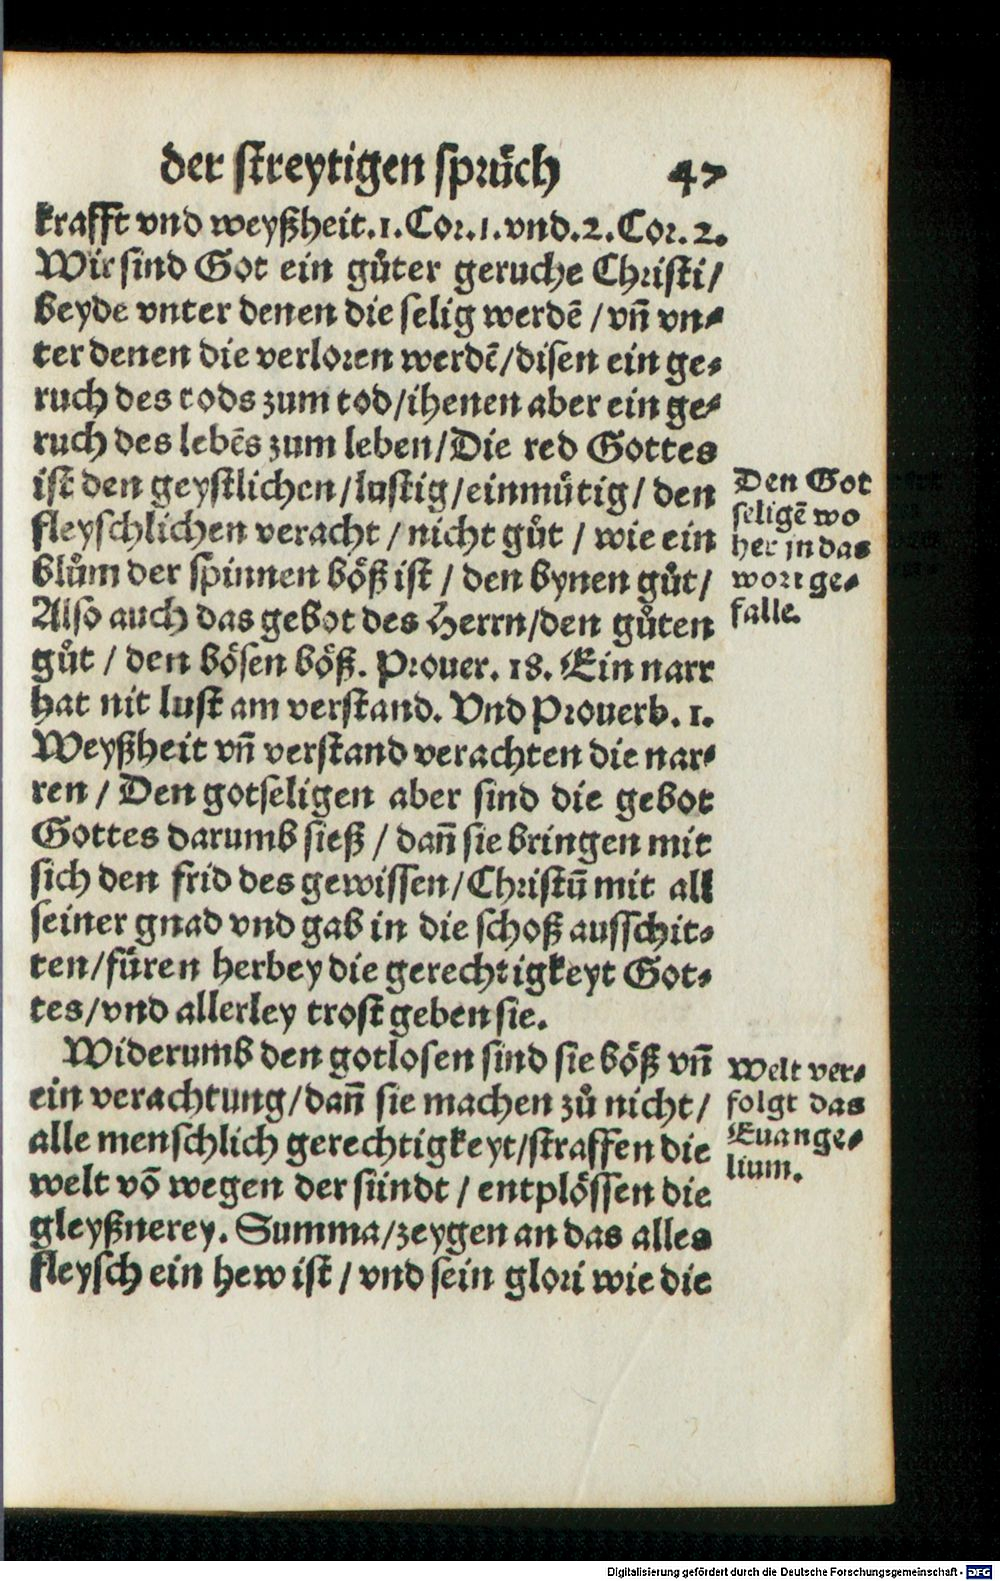 der streytigen sprüch 47
krafft vnd weyßheit.1.Cor.1.vnd.2.Cor.2.
Wir sind Got ein gůter geruche Christi/
beyde vnter denen die selig werdē/vn̄ vn-
ter denen die verloren werdē/disen ein ge-
ruch des tods zum tod/ihenen aber ein ge-
ruch des lebēs zum leben/Die red Gottes
ist den geystlichen/lustig/einmütig/den
fleyschlichen veracht/nicht gůt/wie ein
blům der spinnen böß ist/den bynen gůt/
Also auch das gebot des Herrn/den gůten
gůt/den bösen böß. Prouer. 18. Ein narr
hat nit lust am verstand. Vnd Prouerb. 1.
Weyßheit vn̄ verstand verachten die nar-
ren/Den gotseligen aber sind die gebot
Gottes darumb sieß/dan̄ sie bringen mit
sich den frid des gewissen/Christū mit all
seiner gnad vnd gab in die schoß ausschit-
ten/füren herbey die gerechtigkeyt Got-
tes/vnd allerley trost geben sie.
Widerumb den gotlosen sind sie böß vn̄
ein verachtung/dan̄ sie machen zů nicht/
alle menschlich gerechtigkeyt/straffen die
welt vō wegen der sündt/entplössen die
gleyßnerey. Summa/zeygen an das alles
fleysch ein hew ist/vnd sein glori wie die
Den Got
seligē wo
her jn das
wort ge-
falle.
Welt ver-
folgt das
Euange-
lium.
Digitalisierung gefördert durch die Deutsche Forschungsgemeinschaft - DFG